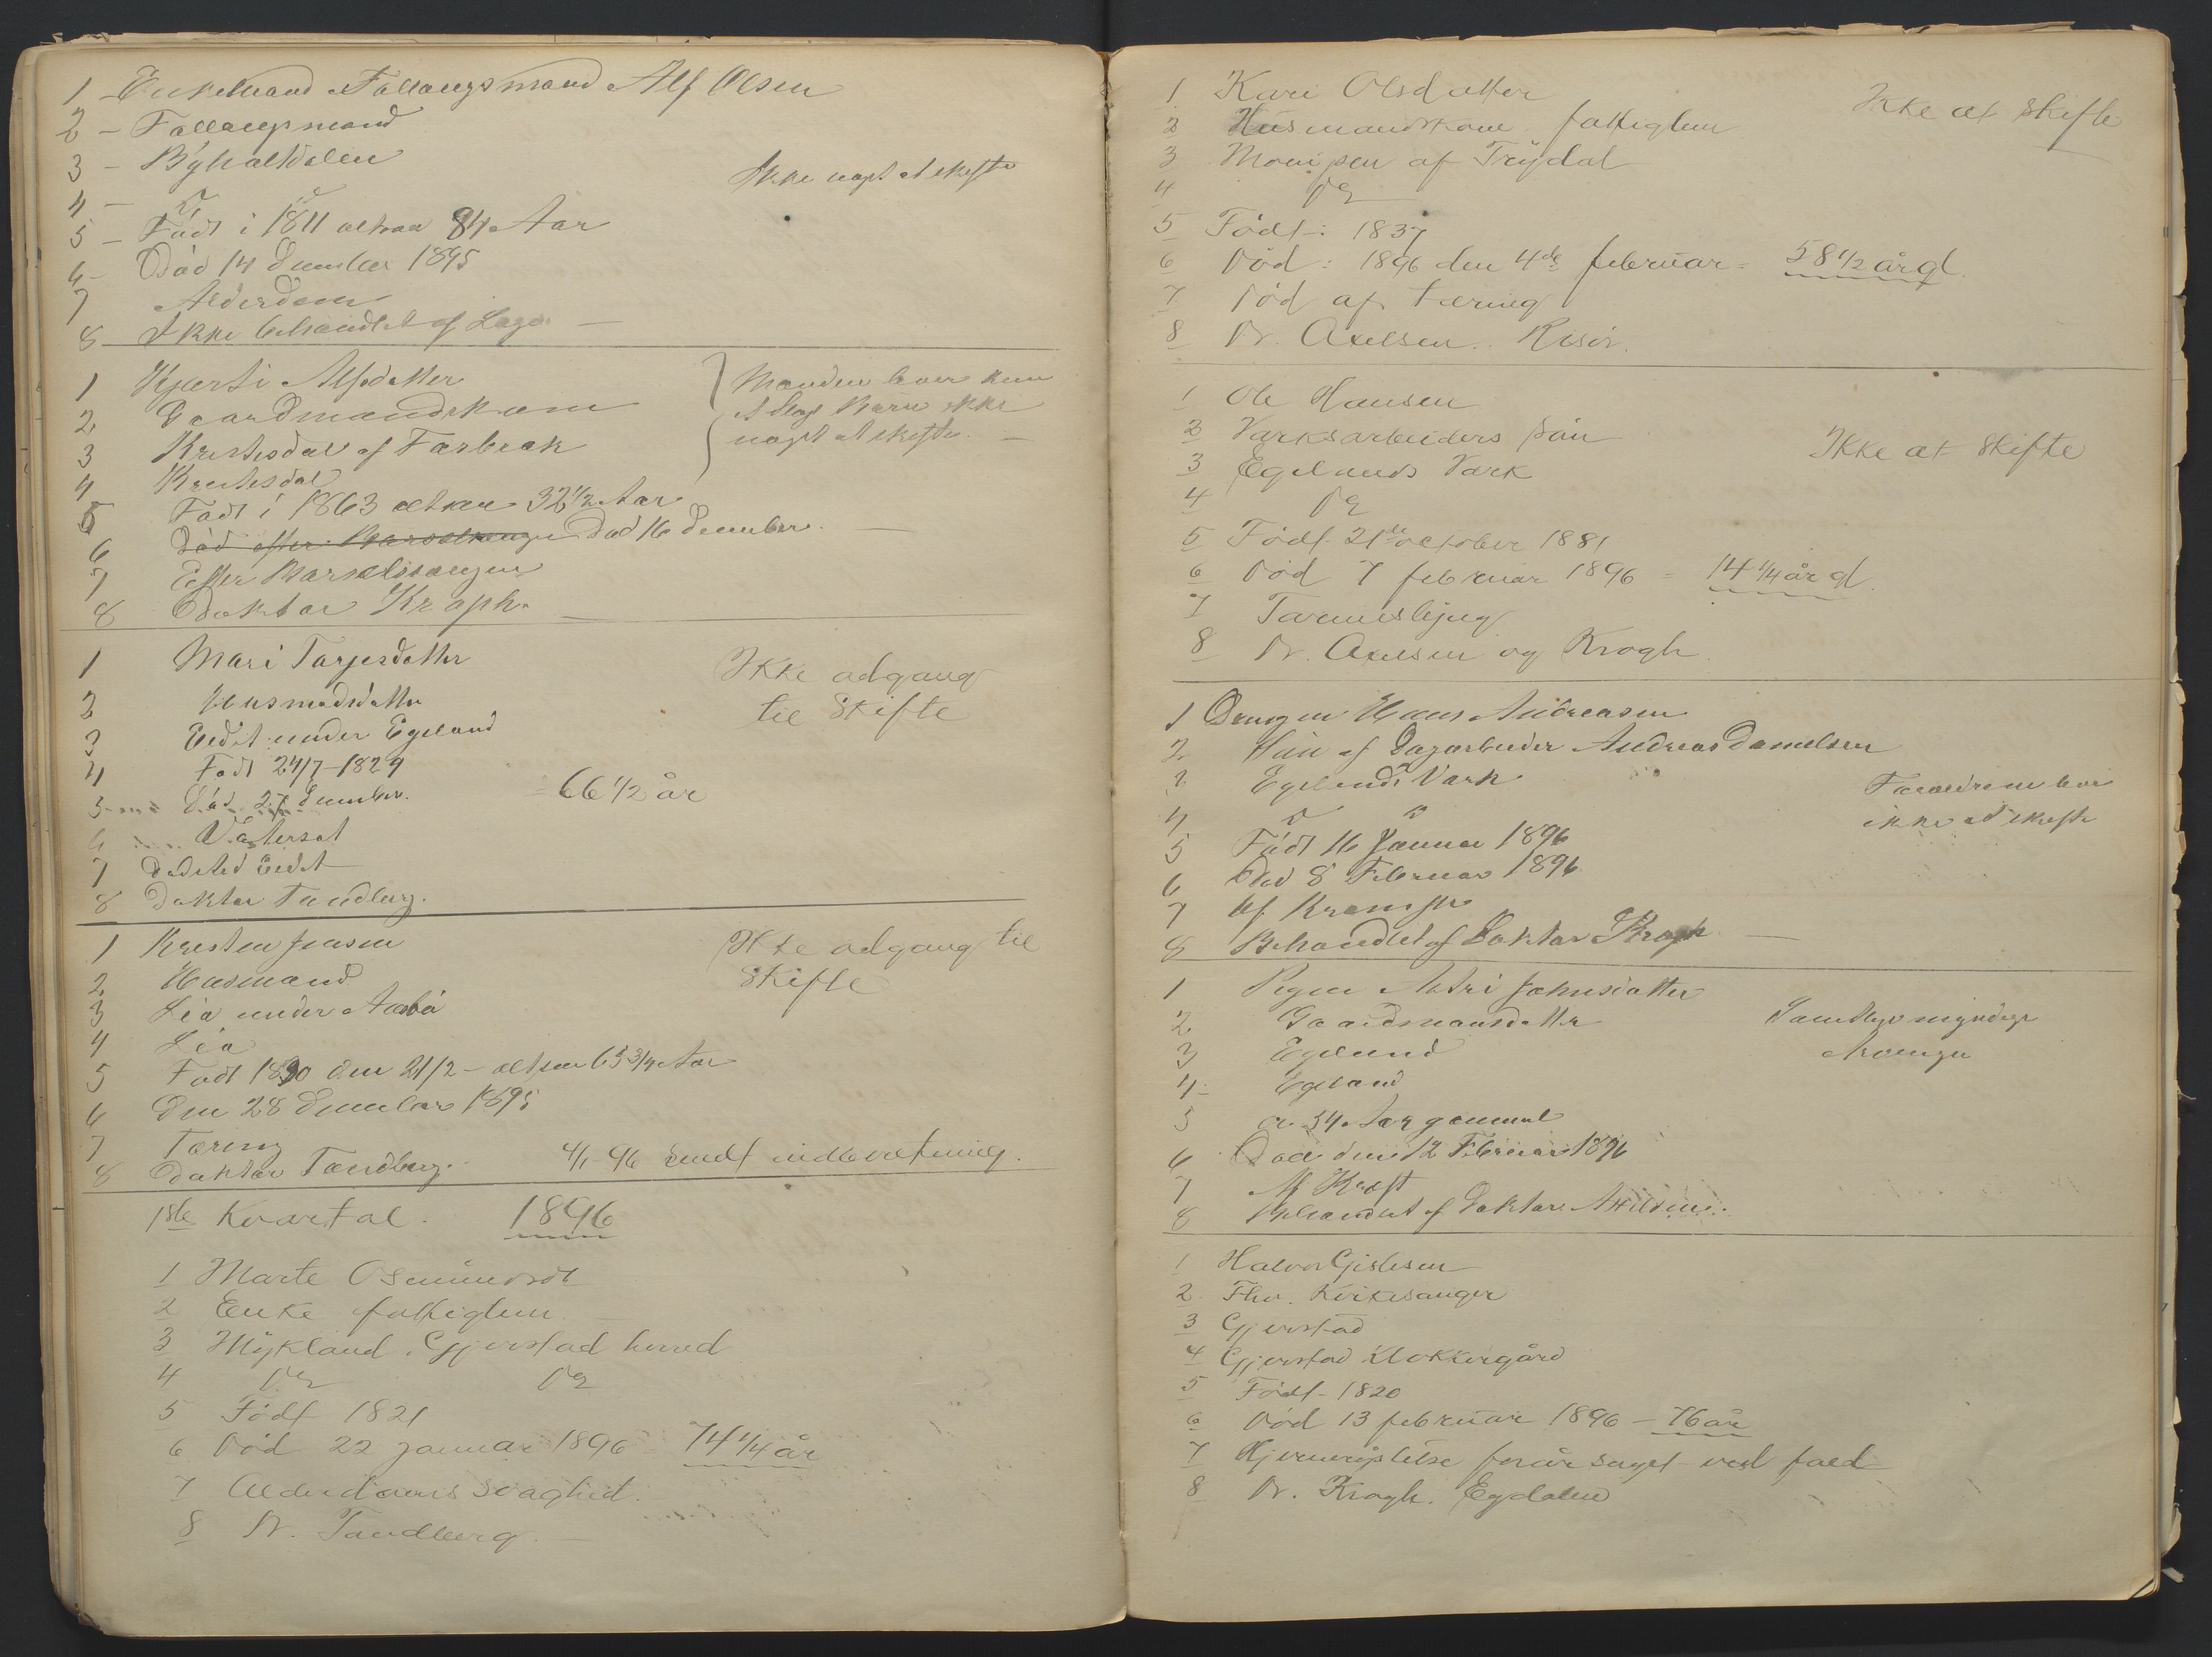 1 - Enkemand Follaugsmand Alf Olsen
2 - Follaugsmand
3 - Byholtdalen
Ikke noget at skifte
4 - D D
5 - Födt i 1811 altsaa 84 Aar
6 - Död 14 December 1895
7 Alderdom
8 Ikke behandlet af Læge —
1 Kjersti Alfsdatter
2 Gaardmandskone
3 Kristesdal af Farbrek
4 Kristesdal
Manden lever kun
et slags Børn ikke
noget at skifte. —
5 Födt i 1863 altsaa 32 1/2 Aar
6 Död efter Barselseng Död 16 December. —
7 Efter Barselsengen
8 Doktor Krogh. —
1 Mari Tarjesdatter
2 Husmandsdatter
3 Eidet under Egeland
Ikke adgang
til Skifte
4 Födt 24/7-1829
5 Död 27 December. = 66 1/2 år
6 Vatersot
7 Dödsted Eidet
8 Doktor Tandberg.
1 Kristen Jensen
2 Husmand
3 Lia under Aasbö
4 Lia
Ikke adgang til
Skifte
5 Födt 1830 den 21/2 - altsaa 65 3/4 Aar
6 Den 28 December 1895
7 Tæring
8 Doktor Tandberg. 4/1 96 sendt indberetning.
1ste Kvartal. 1896
1 Marte Osmundsdt
2 Enke fattiglem. —
3 Mykland, Gjerstad herred
4 do do
5 Födt 1821
6 Död 22 januar 1896 74 1/4 år
7 Alderdoms svaghed.
8 Dr. Tandberg. —
1 Kari Olsdatter
2 Husmandskone fattiglem
3 Monipen af Trydal
Ikke at skifte
4 do
5 Födt: 1837
6 Död: 1896 den 4de februar = 58 1/2 år gl.
7 Död af tæring
8 Dr. Axelsen. Risör.
1 Ole Hansen
2 Værksarbeiders sön
3 Egelands Værk
Ikke at skifte
4 do
5 Födt 21de october 1881
6 Död 7 februar 1896 = 14 1/4 år gl.
7 Tarmeslyng
8 Dr. Axelsen og Krogh.
1 Drengen Hans Andreasen
2 Sön af Dagarbeider Andreas Danielsen
3 Egelands Værk
4 D D
Forældrene lever
ikke at skifte
5 Födt 16 Januar 1896
6 Död 8 Februar 1896
7 Af Krampe
8 Behandlet af Doktor Krogh —
1 Pigen Astri Johnsdatter
2 Gaardmansdatter
3 Egeland
4 - Egeland
Samtlige myndige
Arvinger
5 ca. 54 Aar gammel
6 Död den 12 Februar 1896
7 Af Kræft
8 Behandlet af Doktor
1 Halvor Gislesen
2 Fhv. Kirkesanger
3 Gjerstad
4 Gjerstad Klokkergård
5 Födt - 1820
6 Död 13 februar 1896 - 76 år
7 Hjernerystelse forårsaget ved fald
8 Dr. Krogh. Egdalen